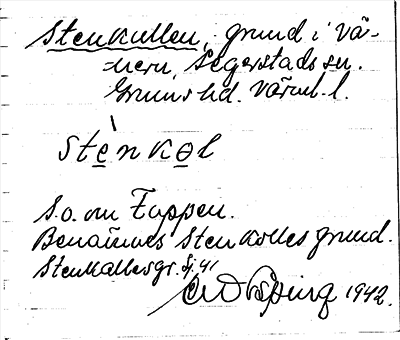 Stenkullen, grund i Vä-
nern, Segerstads sn.
Grums hd. Värml. l.
stènkol
S.o. om Toppen.
Benämnes Stenkolles grund.
Stenkallesgr. Sj. 41
1942.